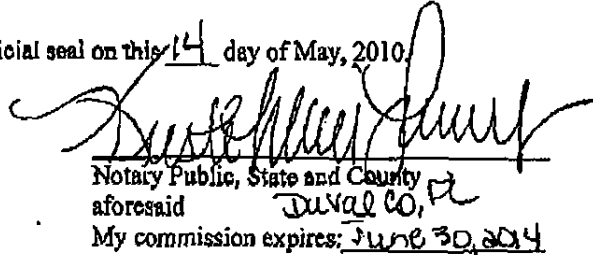 icial seal on this 14 day of May, 2010.
Notary Public, State and County
aforesaid Duval CO, FL
My commission expires: June 30, 2014